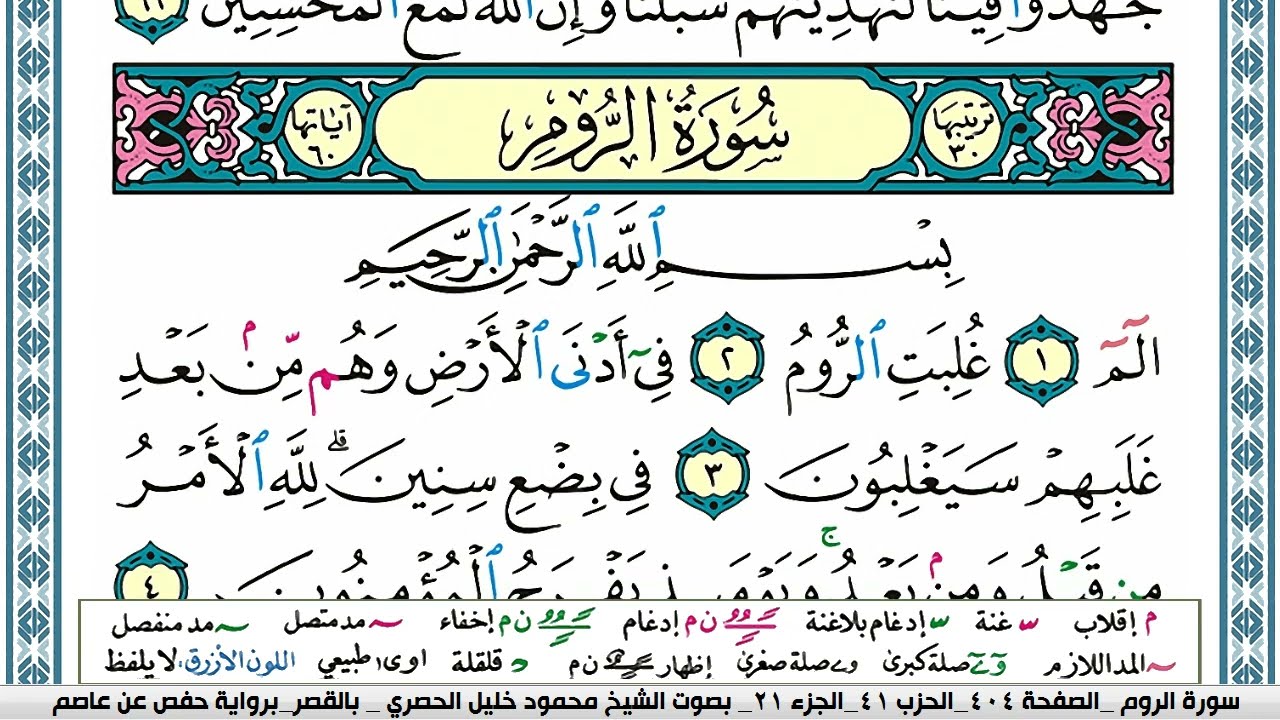 جَـٰهَدُوا۟ فِينَا لَنَهْدِيَنَّهُمْ سُبُلَنَا وَإِنَّ ٱللَّهَ لَمَعَ ٱلْمُحْسِنِينَ ٦٩
ترتيبها ٣٠ سُورَةُ الرُّومِ آياتها ٦٠
بِسْمِ ٱللَّهِ ٱلرَّحْمَـٰنِ ٱلرَّحِيمِ
الٓمٓ ١ غُلِبَتِ ٱلرُّومُ ٢ فِىٓ أَدْنَى ٱلْأَرْضِ وَهُم مِّنۢ بَعْدِ
غَلَبِهِمْ سَيَغْلِبُونَ ٣ فِى بِضْعِ سِنِينَ ۗ لِلَّهِ ٱلْأَمْرُ
مِن قَبْلُ وَمِنۢ بَعْدُ ۚ وَيَوْمَئِذٍ يَفْرَحُ ٱلْمُؤْمِنُونَ ٤
م إقلاب س غنة س إدغام بلاغنة ن م إدغام ن م إخفاء مد متصل مد منفصل
المد اللازم و ے صلة كبرى و ے صلة صغرى إظهار ن م قلقلة اوى، طبيعي اللون الأزرق، لا يلفظ
سورة الروم _الصفحة ٤٠٤_الحزب ٤١_الجزء ٢١_ بصوت الشيخ محمود خليل الحصري _ بالقصر_برواية حفص عن عاصم